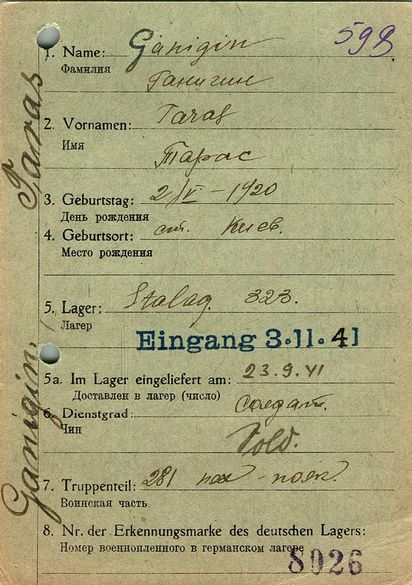 598
1. Name: Ganigin
Фамилия
Ганигин
2. Vornamen: Taras
Имя
Тарас
3. Geburtstag: 2/IV - 1920
День рождения
4. Geburtsort: Киев.
Место рождения
5. Lager: Stalag. 323.
Лагер
Eingang 3.11.41
5a. Im Lager eingeliefert am: 23.9.41
Доставлен в лагер (число)
6. Dienstgrad: Солдат.
Чин
Sold.
7. Truppenteil: 281
Воинская часть
8. Nr. der Erkennungsmarke des deutschen Lagers:
Номер военнопленного в германском лагере
8026
Ganigin, Taras